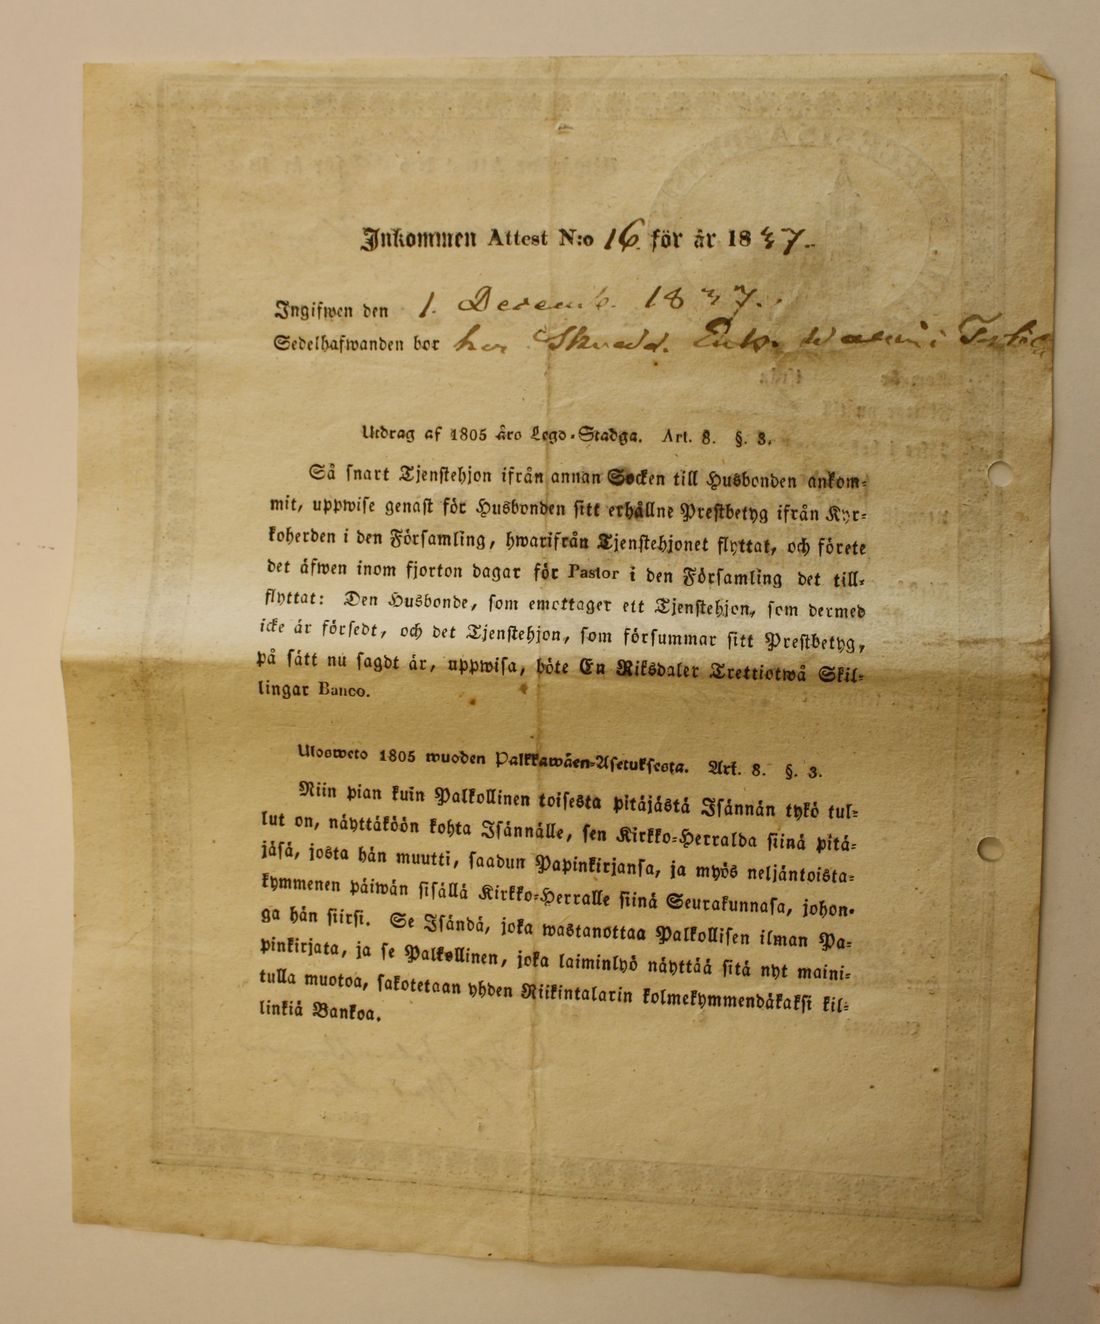 Inkommen Attest N:o 16. för år 1837.
Ingifwen den 1. Decemb. 1837.
Sedelhafwanden bor hos Skradd. Enk. i
Utdrag af 1805 års Lego-Stadga. Art. 8. §. 3.
Så snart Tjenstehjon ifrån annan Socken till Husbonden ankom-
mit, uppwise genast för Husbonden sitt erhållne Prestbetyg ifrån Kyr-
koherden i den Församling, hwarifrån Tjenstehjonet flyttat, och förete
det äfwen inom fjorton dagar för Pastor i den Församling det till-
flyttat: Den Husbonde, som emottager ett Tjenstehjon, som dermed
icke är försedt, och det Tjenstehjon, som försummar sitt Prestbetyg,
på sätt nu sagdt är, uppwisa, böte En Riksdaler Trettiotwå Skil-
lingar Banco.
Ulosweto 1805 wuoden Palkkawäen-Asetuksesta. Art. 8. §. 3.
Niin pian kuin Palkollinen toisesta pitäjästä Isännän tykö tul-
lut on, näyttäköön kohta Isännälle, sen Kirkko-Herralda siinä pitä-
jäsä, josta hän muutti, saadun Papinkirjansa, ja myös neljäntoista-
kymmenen päiwän sisällä Kirkko-Herralle siinä Seurakunnasa, johon-
ga hän siirsi. Se Isändä, joka wastanottaa Palkollisen ilman Pa-
pinkirjata, ja se Palkollinen, joka laiminlyö näyttää sitä nyt maini-
tulla muotoa, sakotetaan yhden Riikintalarin kolmekymmendäkaksi kil-
linkiä Bankoa.